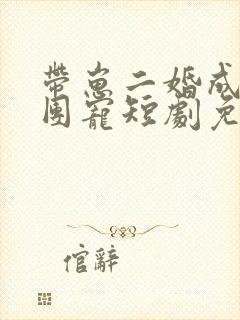 帶崽二婚成
團寵短劇免
倌辭